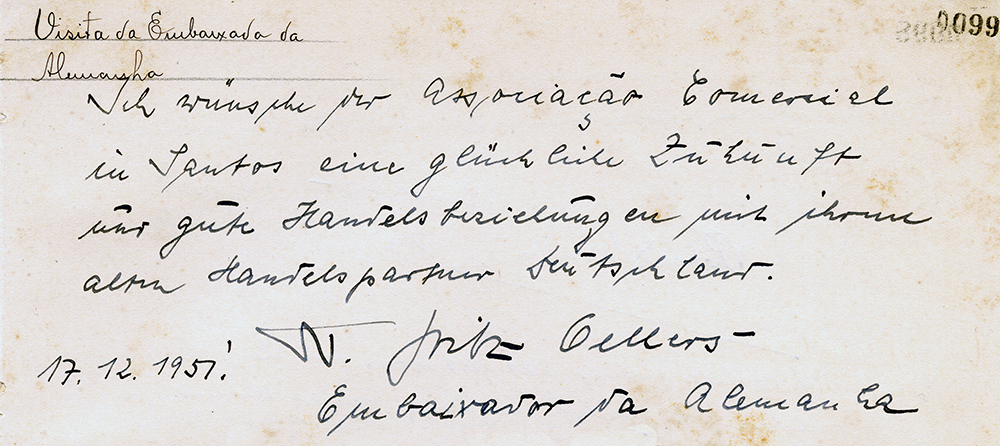 Visita da Embaixada da
Alemanha
0099
Ich wünsche der Associação Comercial
in Santos eine glückliche Zukunft
und gute Handelsbeziehungen mit ihrem
alten Handelspartner Deutschland.
Fritz Oellers
17. 12. 1951.
Embaixador da Alemanha